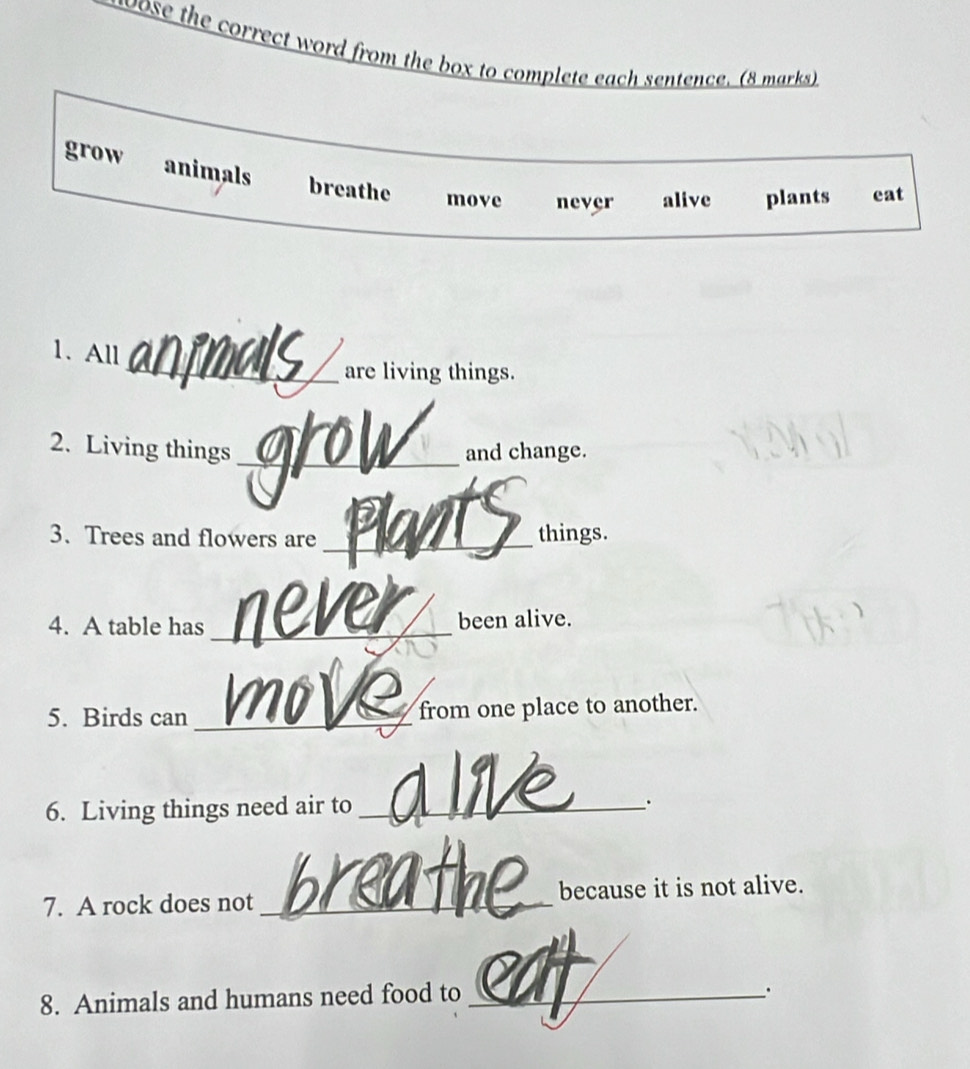 the correct word from the box to complete each sentence. (8 marks)
grow animals breathe move never alive plants eat
1. All animals are living things.
2. Living things grow and change.
3. Trees and flowers are plants things.
4. A table has never been alive.
5. Birds can move from one place to another.
6. Living things need air to alive.
7. A rock does not breathe because it is not alive.
8. Animals and humans need food to eat.